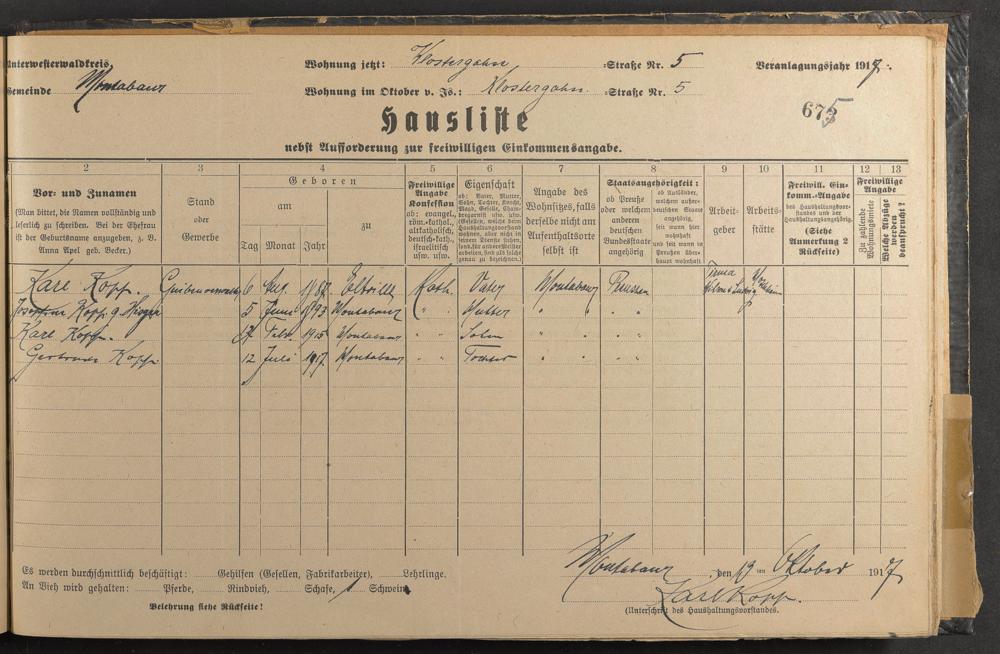 Unterwesterwaldkreis. Wohnung jetzt: Klostergahn -Straße Nr. 5 Veranlagungsjahr 1917.
Gemeinde Montabaur Wohnung im Oktober v. Js.: Klostergahn. -Straße Nr. 5
675
Hausliste
nebst Aufforderung zur freiwilligen Einkommensangabe.
2 3 4 5 6 7 8 9 10 11 12 13
Vor- und Zunamen
(Man bittet, die Namen vollständig und
leserlich zu schreiben. Bei der Ehefrau
ist der Geburtsname anzugeben, z. B.
Anna Apel geb. Becker.)
Stand
oder
Gewerbe
Geboren
am
zu
Tag Monat Jahr
Freiwillige
Angabe
Konfession
ob: evangel.,
röm.-kathol.,
altkatholisch,
deutsch-kath.,
israelitisch
usw. usw.
Eigenschaft
ob: Vater, Mutter,
Sohn, Tochter, Knecht,
Magd, Geselle, Cham-
bregarnist usw. usw.
Angabe des
Wohnsitzes, falls
derselbe nicht am
Aufenthaltsorte
selbst ist
Staatsangehörigkeit:
ob Preuße
oder welchem
anderen
deutschen
Bundesstaate
angehörig
ob Ausländer,
welchem außer-
deutschen Staate
angehörig,
seit wann hier
wohnhaft
und seit wann in
Preußen über-
haupt wohnhaft
Arbeit-
geber
Arbeits-
stätte
Freiwill. Ein-
komm.-Angabe
des Haushaltungsvor-
standes und der
Haushaltungsangehörig.
(Siehe
Anmerkung 2
Rückseite)
Freiwillige
Angabe
Zu zahlende
Wohnungsmiete
Welche Abzüge
werden
beansprucht?
Karl Kopp. Grubenverwalter 6 Aug. 1887 Eltville Kath. Vater Montabaur Preussen Firma
Josefine Kopp g. 5 Juni 1893 Montabaur " " Mutter " " "
Karl Kopp. Febr. 1915 Montabaur " " Sohn " " "
Gertrude Kopp 12 Juli 1917 Montabaur " " Tochter " " "
Es werden durchschnittlich beschäftigt: Gehilfen (Gesellen, Fabrikarbeiter), Lehrlinge.
An Vieh wird gehalten: Pferde, Rindvieh, Schafe, 1 Schwein
Belehrung siehe Rückseite!
Montabaur, den 19 ten Oktober 1917
Karl Kopp.
(Unterschrift des Haushaltungsvorstandes.